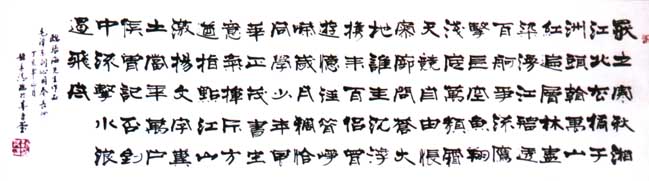 獨立寒秋湘
江北去橘子
洲頭看萬山
紅遍層林盡
染漫江碧透
百舸爭流鷹
擊長空魚翔
淺底萬類霜
天競自由悵
寥廓問蒼大
地誰主沈浮
攜來百侶曾
遊憶往昔崢
嶸歲月稠恰
同學少年風
華正茂書生
意氣揮斥方
遒指點江山
激揚文字糞
土當年萬戶
侯曾記否到
中流擊水浪
遏飛舟
毛澤東詞沁園春長沙
丁亥年